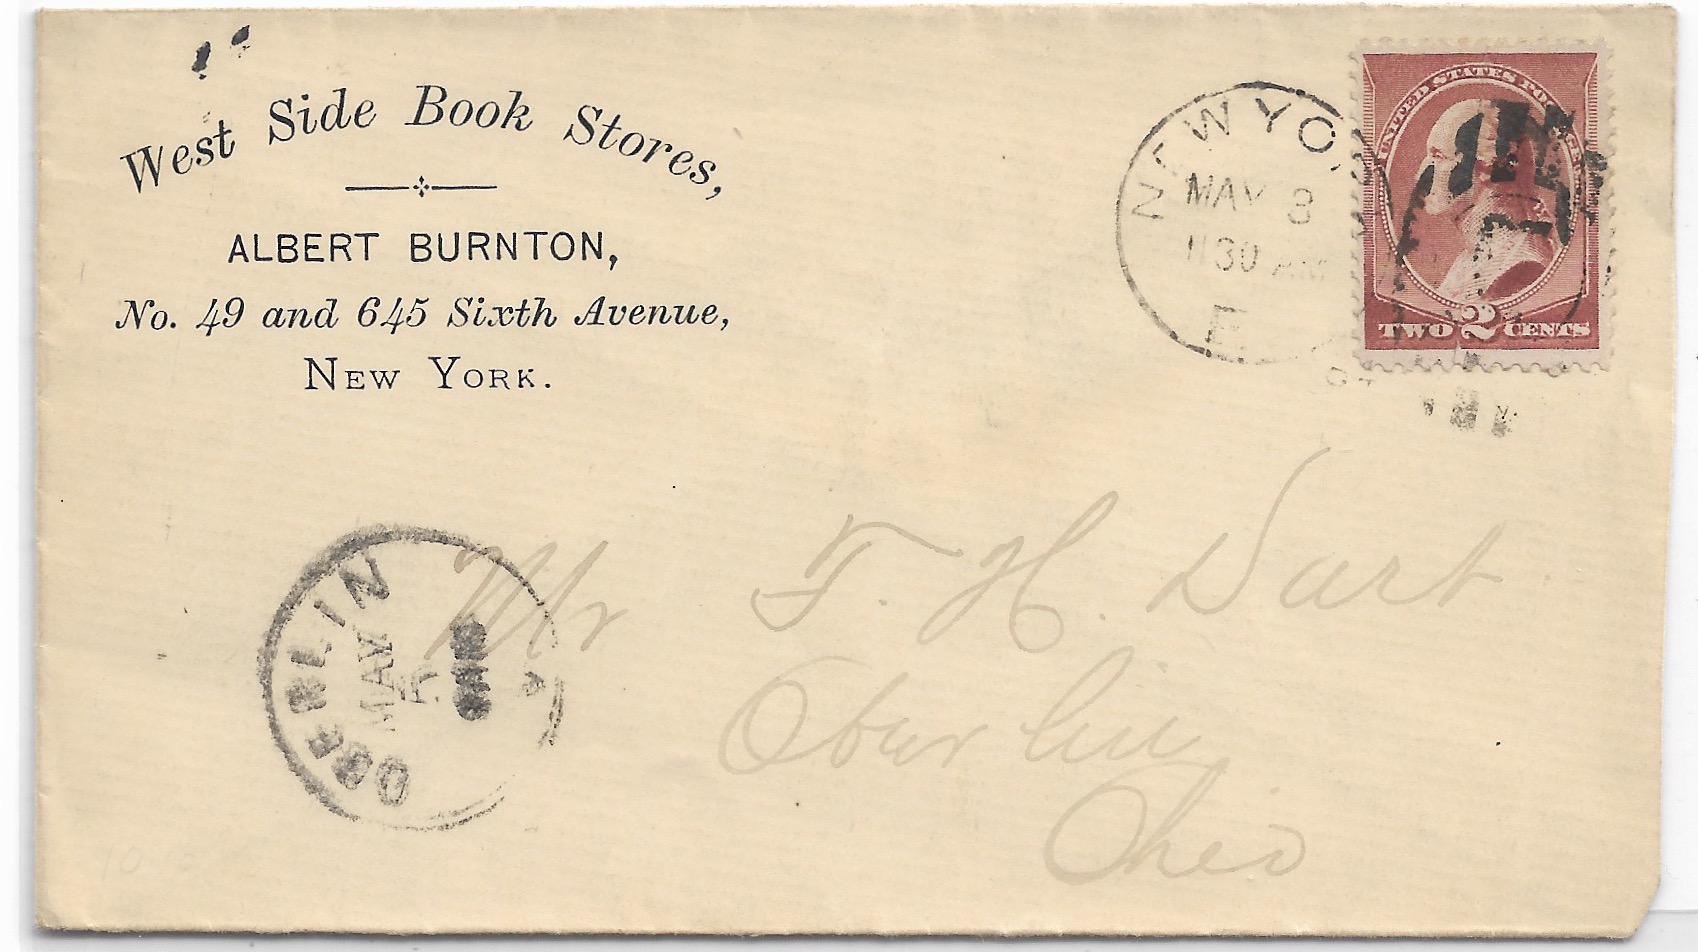 West Side Book Stores,
ALBERT BURNTON,
No. 49 and 645 Sixth Avenue,
NEW YORK.
NEW YOR
MAY 3
1130 AM
UNITED STATES POSTAGE
TWO 2 CENTS
OBERLIN
MAY
5
Mr F. H. Dart
Oberlin
Ohio